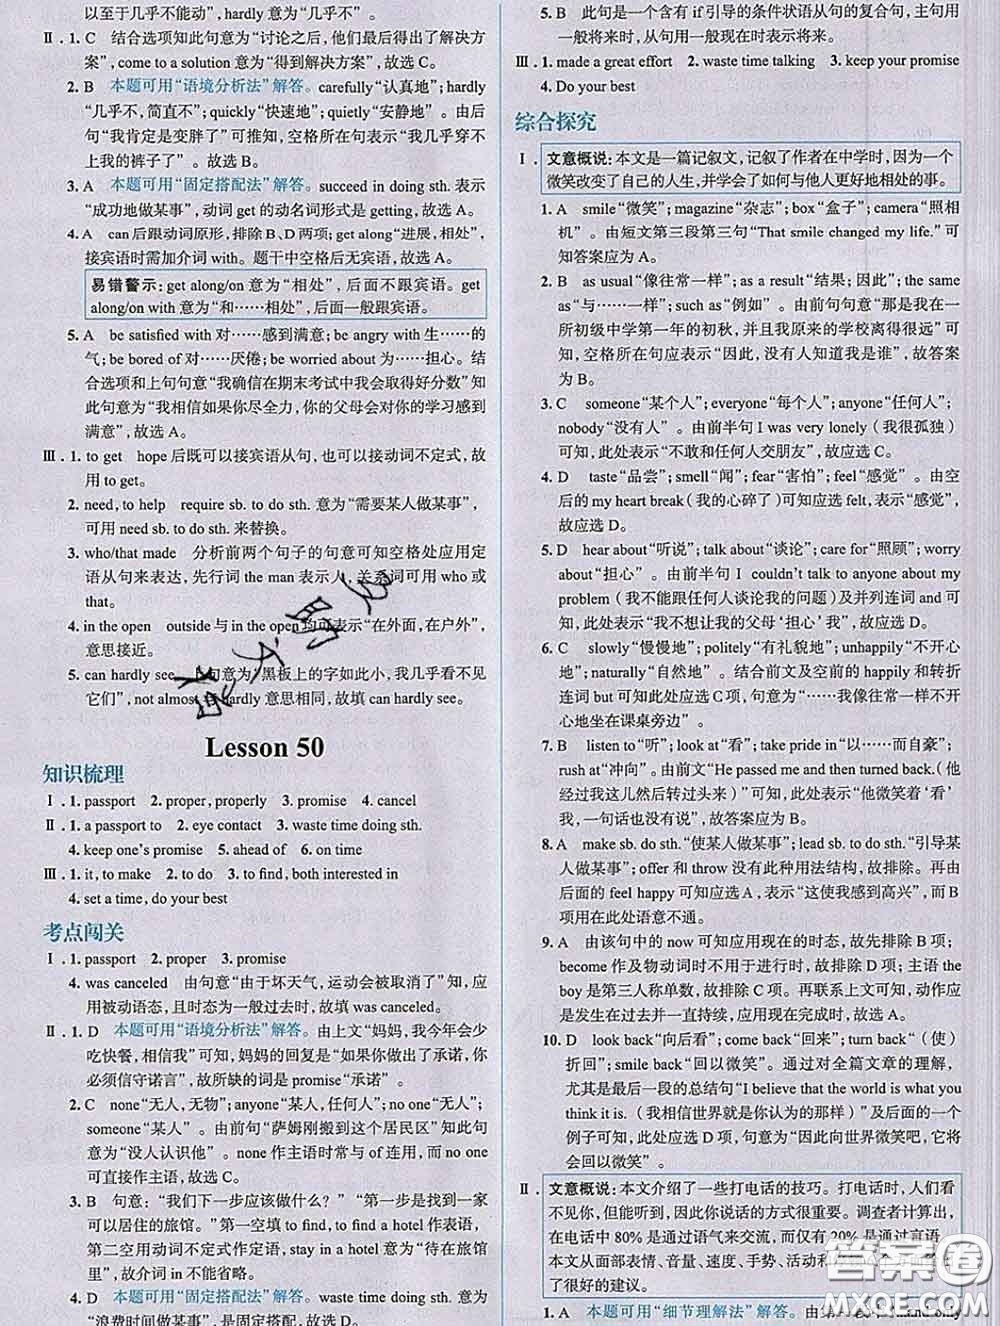 以至于几乎不能动”, hardly 意为“几乎不” 。
Ⅱ . 1. C 结合选项知此句意为“讨论之后, 他们最后得出了解决方
案”, come to a solution 意为“得到解决方案”, 故选 C。
2. B 本题可用“语境分析法”解答。carefully“认真地”; hardly
“几乎不, 简直不”; quickly“快速地”; quietly“安静地” 。由后
句“我肯定是变胖了”可推知, 空格所在句表示“我几乎穿不
上我的裤子了” 。故选 B。
3. A 本题可用“固定搭配法”解答。succeed in doing sth. 表示
“成功地做某事”, 动词 get 的动名词形式是 getting, 故选 A。
4. A can 后跟动词原形, 排除 B、D 两项; get along“进展, 相处”,
接宾语时需加介词 with。题干中空格后无宾语, 故选 A。
易错警示: get along/on 意为“相处”, 后面不跟宾语。get
along/on with 意为“和……相处”, 后面一般跟宾语。
5. A be satisfied with 对……感到满意; be angry with 生……的
气; be bored of 对……厌倦; be worried about 为……担心。结
合选项和上句句意“我确信在期末考试中我会取得好分数”知
此句意为“我相信如果你尽全力, 你的父母会对你的学习感到
满意”, 故选 A。
Ⅲ . 1. to get hope 后既可以接宾语从句, 也可以接动词不定式, 故
用 to get。
2. need, to help require sb. to do sth. 意为“需要某人做某事”,
可用 need sb. to do sth. 来替换。
3. who/that made 分析前两个句子的句意可知空格处应用定
语从句来表达, 先行词 the man 表示人, 关系词可用 who 或
that。
4. in the open outside 与 in the open 均可表示“在外面, 在户外”,
意思接近。
5. can hardly see 句意为“黑板上的字如此小, 我几乎看不见
它们”, not almost hardly 意思相同, 故填 can hardly see。
Lesson 50
知识梳理
Ⅰ . 1. passport 2. proper, properly 3. promise 4. cancel
Ⅱ . 1. a passport to 2. eye contact 3. waste time doing sth.
4. keep one's promise 5. ahead of 6. on time
Ⅲ . 1. it, to make 2. to do 3. to find, both interested in
4. set a time, do your best
考点闯关
Ⅰ . 1. passport 2. proper 3. promise
4. was canceled 由句意“由于坏天气, 运动会被取消了”知, 应
用被动语态, 且时态为一般过去时, 故填 was canceled。
Ⅱ . 1. D 本题可用“语境分析法”解答。由上文“妈妈, 我今年会少
吃快餐, 相信我”可知, 妈妈的回复是“如果你做出了承诺, 你
必须信守诺言”, 故所缺的词是 promise“承诺” 。
2. C none“无人, 无物”; anyone“某人, 任何人”; no one“无人”;
someone“某人” 。由前句“萨姆刚搬到这个居民区”知此句意
为“没人认识他” 。none 作主语时常与 of 连用, 而 no one 可
直接作主语, 故选 C。
3. B 句意: “我们下一步应该做什么? ” “第一步是找到一家
可以居住的旅馆。”第一空填 to find, to find a hotel 作表语,
第二空用动词不定式作定语, stay in a hotel 意为“待在旅馆
里”, 故介词 in 不能省略。
4. D 本题可用“固定搭配法”解答。waste time doing sth. 意为
“浪费时间做某事”, 是固定搭配, 故选 D。
5. B 此句是一个含有 if 引导的条件状语从句的复合句, 主句用
一般将来时, 从句用一般现在时表示将来。
Ⅲ . 1. made a great effort 2. waste time talking 3. keep your promise
4. Do your best
综合探究
Ⅰ . 文意概说: 本文是一篇记叙文, 记叙了作者在中学时, 因为一个
微笑改变了自己的人生, 并学会了如何与他人更好地相处的事。
1. A smile“微笑”; magazine“杂志”; box“盒子”; camera“照相
机” 。由短文第三段第三句“That smile changed my life.”可
知答案应为 A。
2. B as usual“像往常一样”; as a result“结果; 因此”; the same
as“与……一样”; such as“例如” 。由前句句意“那是我在一
所初级中学第一年的初秋, 并且我原来的学校离得很远”可
知, 空格所在句应表示“因此, 没有人知道我是谁”, 故答案
为 B。
3. C someone“某个人”; everyone“每个人”; anyone“任何人”;
nobody“没有人” 。由前半句 I was very lonely (我很孤独)
可知, 此处表示“不敢和任何人交朋友”, 故应选 C。
4. D taste“品尝”; smell“闻”; fear“害怕”; feel“感觉” 。由空
后的 my heart break (我的心碎了) 可知应选 felt, 表示“感觉”,
故应选 D。
5. D hear about“听说”; talk about“谈论”; care for“照顾”; worry
about“担心” 。由前半句 I couldn't talk to anyone about my
problem (我不能跟任何人谈论我的问题) 及并列连词 and 可
知, 此处表示“我不想让我的父母‘担心’我”, 故应选 D。
6. C slowly“慢慢地”; politely“有礼貌地”; unhappily“不开心
地”; naturally“自然地” 。结合前文及空前的 happily 和转折
连词 but 可知此处应选 C 项, 句意为“……我像往常一样不开
心地坐在课桌旁边” 。
7. B listen to“听”; look at“看”; take pride in“以……而自豪”;
rush at“冲向” 。由前文“He passed me and then turned back. (他
经过我这儿然后转过头来) ”可知, 此处表示“他微笑着‘看’
我, 一句话也没有说”, 故答案应为 B。
8. A make sb. do sth. “使某人做某事”; lead sb. to do sth. “引导某
人做某事”; offer 和 throw 没有此种用法结构, 故排除。再由
后面的 feel happy 可知应选 A, 表示“这使我感到高兴”, 而 B
项用在此处语意不通。
9. A 由该句中的 now 可知应用现在的时态, 故先排除 B 项;
become 作及物动词时不用于进行时, 故排除 D 项; 主语 the
boy 是第三人称单数, 故排除 C 项。再联系上文可知, 动作应
是发生在过去并一直持续, 应用现在完成时, 故选 A。
10. D look back“向后看”; come back“回来”; turn back“ (使)
折回”; smile back“回以微笑” 。通过对全篇文章的理解,
尤其是最后一段的总结句“I believe that the world is what you
think it is. (我相信世界就是你认为的那样) ”及后面的一个
例子可知, 此处应选 D 项, 句意为“因此向世界微笑吧, 它将
会回以微笑” 。
Ⅱ . 文意概说: 本文介绍了一些打电话的技巧。打电话时, 人们看
不见你, 但能听到, 因此你说话的方式很重要。调查者计算出,
在电话中 80% 是通过语气来交流, 而仅有 20% 是通过言语。
本文从面部表情、音量、速度、手势、活动和
了很好的建议。
1. A 本题可用“细节理解法”解答。由第 and only
答案圈
MXQE.COM